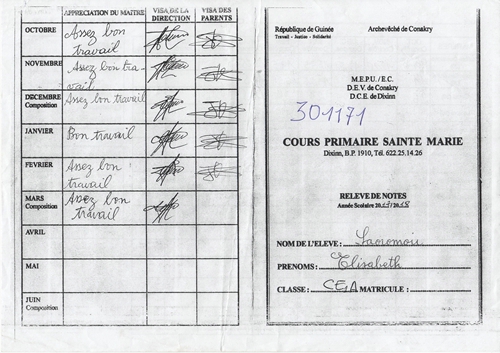 APPRECIATION DU MAITRE
VISA DE LA DIRECTION
VISA DES PARENTS
OCTOBRE
Assez bon
travail
NOVEMBRE
Assez bon tra
vail
DECEMBRE
Composition
Assez bon travail
JANVIER
Bon travail
FEVRIER
Assez bon
travail
MARS
Composition
Assez bon
travail
AVRIL
MAI
JUIN
Composition
République de Guinée
Travail - Justice - Solidarité
Archevêché de Conakry
M.E.P.U./E.C.
D.E.V. de Conakry
D.C.E. de Dixinn
301171
COURS PRIMAIRE SAINTE MARIE
Dixinn, B.P. 1910, Tél. 622.25.14.26
RELEVE DE NOTES
Année Scolaire 2017/2018
NOM DE L'ELEVE :
PRENOMS : Elisabeth
CLASSE : MATRICULE :